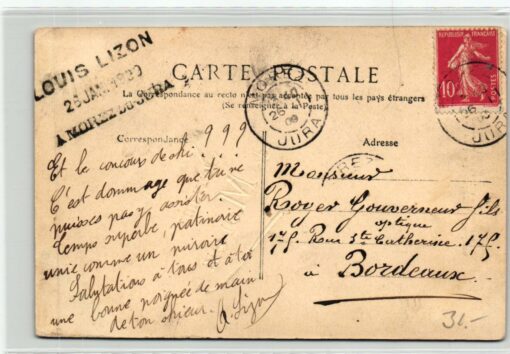 LOUIS LIZON
26 JAN. 1909
A MOREZ-DU-JURA
CARTE POSTALE
La Correspondance au recto n'est pas acceptée par tous les pays étrangers
(Se renseigner à la Poste)
RÉPUBLIQUE FRANÇAISE
10c
POSTES
MOREZ
26
09
JURA
JURA
Correspondance
Adresse
999
Et le concours de ski.
C'est dommage que tu ne
puisses pas y assister.
Temps superbe, patinoire
unie comme un miroir
Salutations à tous et à toi
une bonne poignée de main
de ton vieux L. Lizon
Monsieur
Royer Gouverneur fils
optique
175. Rue Ste Catherine. 175.
à Bordeaux
31.-